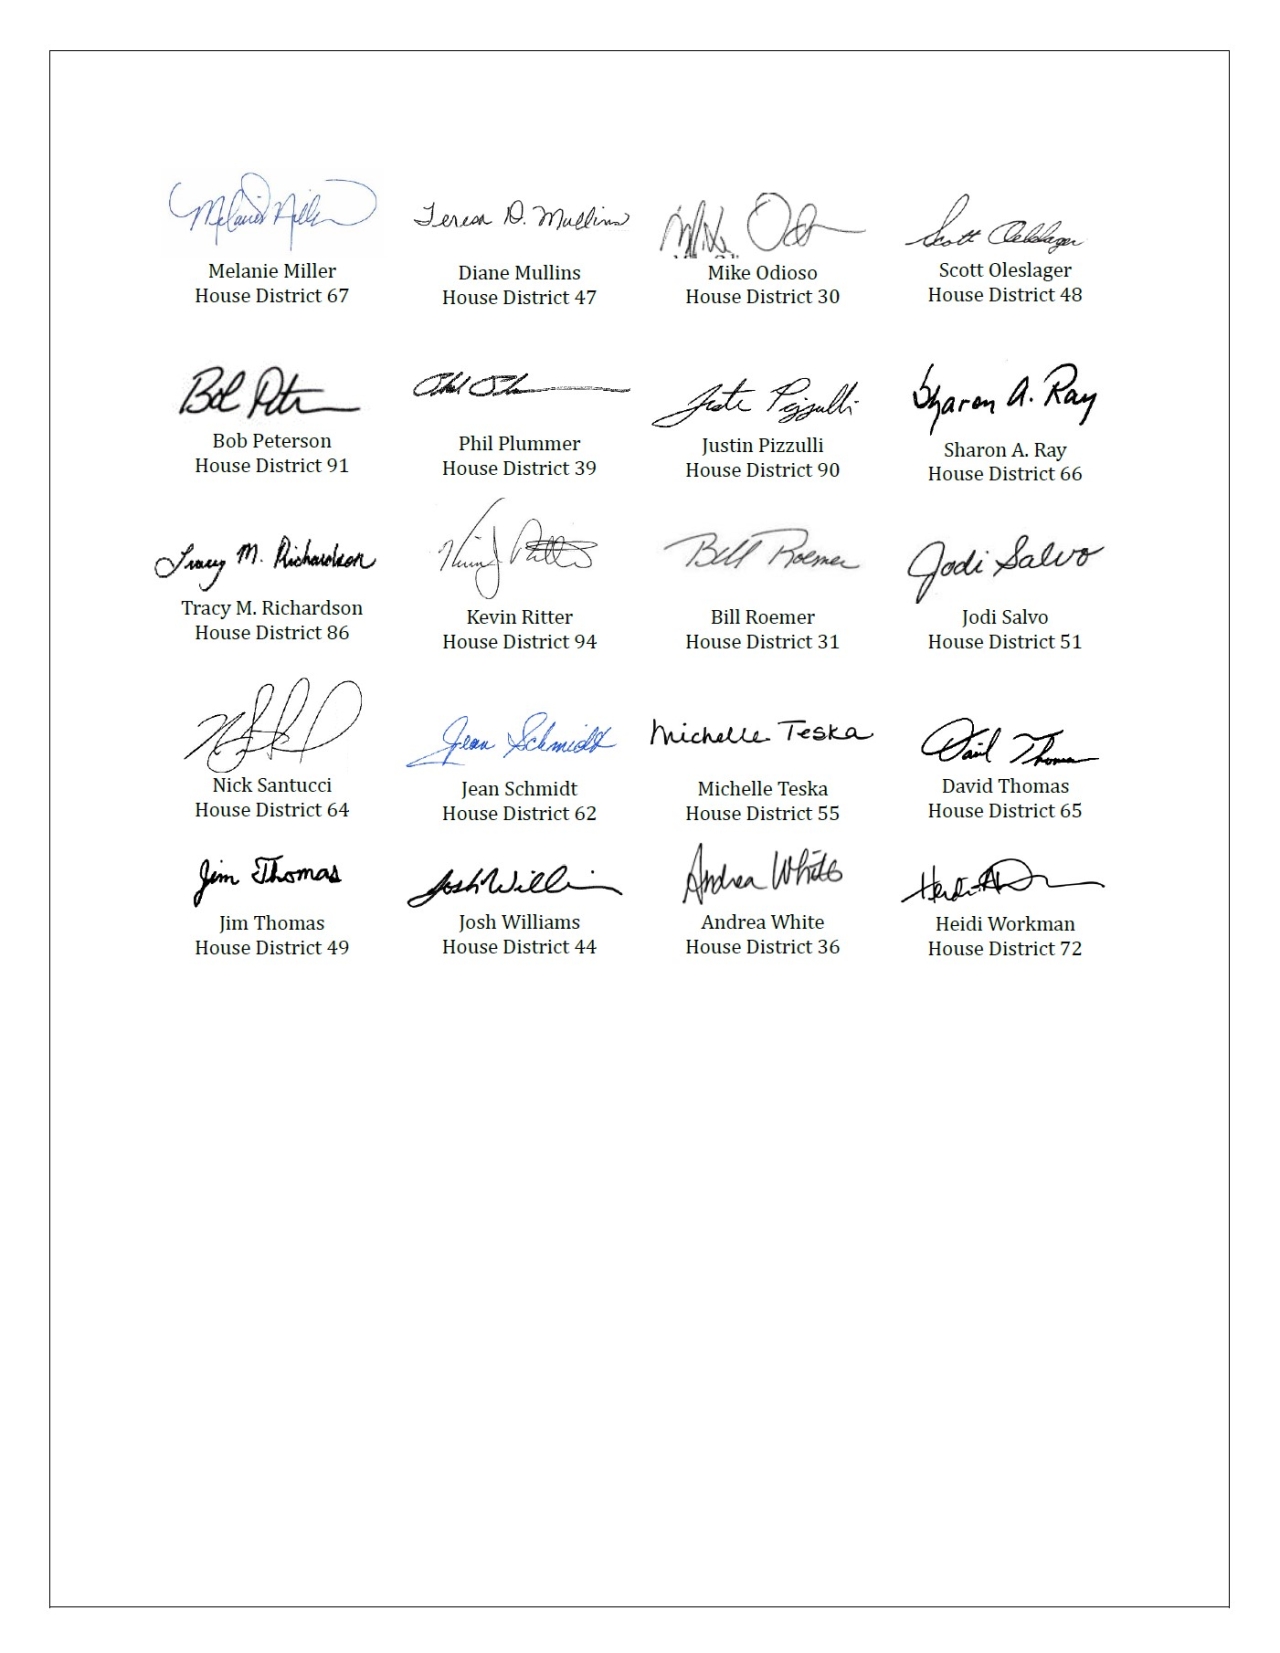 Melanie Miller
Teresa D. Mullins
Mike Od
Scott Oelslager
Melanie Miller
House District 67
Diane Mullins
House District 47
Mike Odioso
House District 30
Scott Oleslager
House District 48
Bob Pete
Justin Pizzulli
Sharon A. Ray
Bob Peterson
House District 91
Phil Plummer
House District 39
Justin Pizzulli
House District 90
Sharon A. Ray
House District 66
Tracy M. Richardson
Bill Roemer
Jodi Salvo
Tracy M. Richardson
House District 86
Kevin Ritter
House District 94
Bill Roemer
House District 31
Jodi Salvo
House District 51
Jean Schmidt
Michelle Teska
David Thomas
Nick Santucci
House District 64
Jean Schmidt
House District 62
Michelle Teska
House District 55
David Thomas
House District 65
Jim Thomas
Josh Willi
Andrea White
Jim Thomas
House District 49
Josh Williams
House District 44
Andrea White
House District 36
Heidi Workman
House District 72